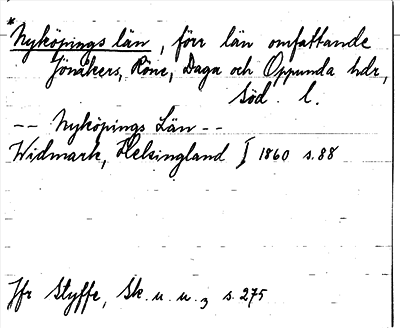 * Nyköpings län, förr län omfattande
Jönåkers, Röne, Daga och Oppunda hdr,
Söd. l.
-- Nyköpings Län --
Widmark, Helsingland I 1860 s. 88
Jfr Styffe, Sk. u. u. 3 s. 275